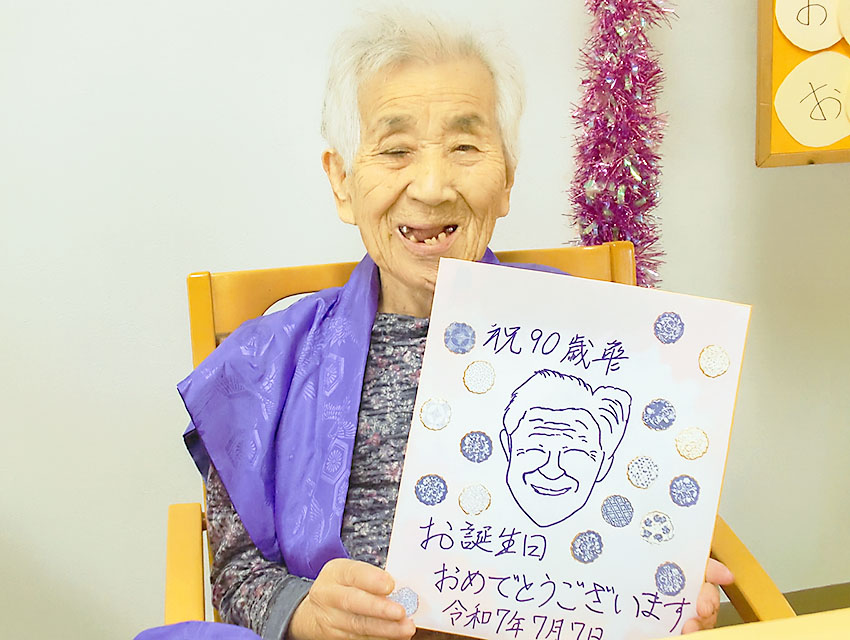 祝90歳
お誕生日
おめでとうございます
令和7年7月7日
お
お